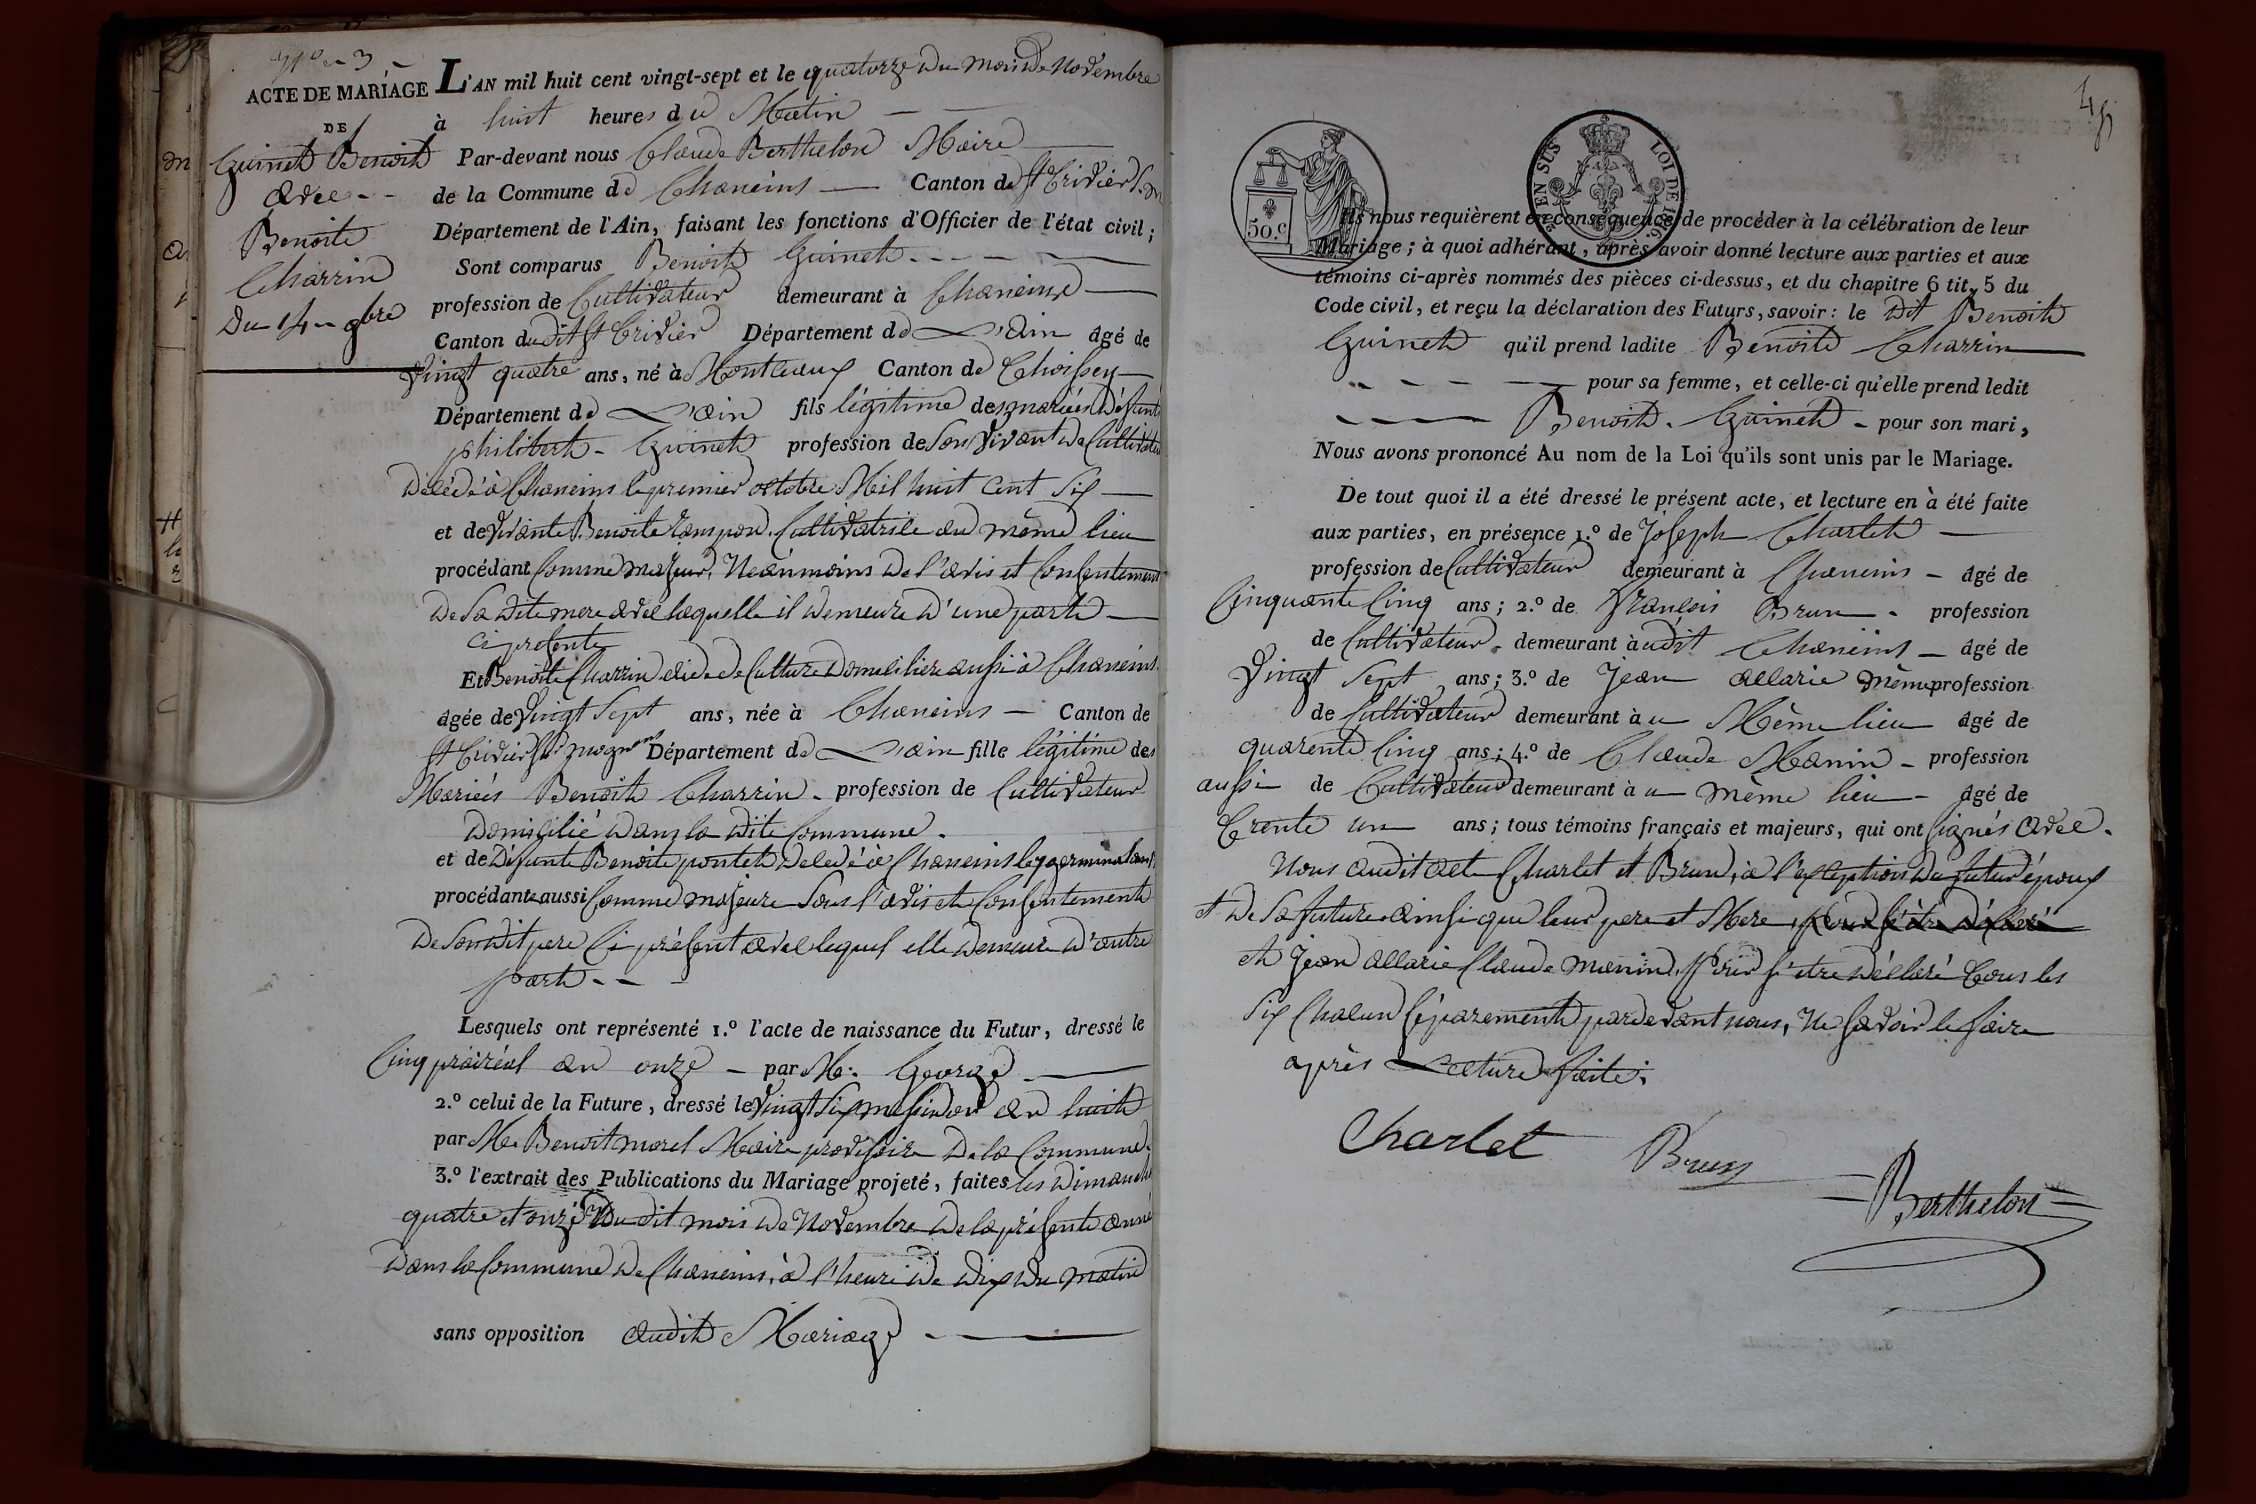 N° 3
ACTE DE MARIAGE
DE
Guinet Benoit
avec
Benoite
Charrin
Du 14 9bre
L'AN mil huit cent vingt-sept et le quatorze du mois de Novembre
à huit heures du Matin
Par-devant nous Claude Berthelon Maire
de la Commune de Chaneins Canton de St Trivier
Département de l'Ain, faisant les fonctions d'Officier de l'état civil ;
Sont comparus Benoit Guinet
profession de Cultivateur demeurant à Chaneins
Canton dudit St Trivier Département de L'ain âgé de
Vingt quatre ans, né à Montceaux Canton de Thoissey
Département de L'ain fils légitime des mariés défunt
philibert Guinet profession de Son Vivant de Cultivateur
décédé à Chaneins le premier octobre Mil huit Cent Six
et de Vivante Benoite Rampon Cultivatrice au même lieu
procédant Comme Majeur, Néanmoins de l'avis et Consentement
de Sa dite mere avec laquelle il demeure d'une part
Ci presente
Et Benoite Charrin aide de Culture Domiciliée aussi à Chaneins
âgée de Vingt Sept ans, née à Chaneins Canton de
St Trivier Département de L'ain fille légitime des
Mariés Benoit Charrin profession de Cultivateur
Domicilié dans la dite Commune.
et de Défunte Benoite pontet décédé à Chaneins le germinal
procédante aussi Comme majeure Sous l'avis et Consentement
de Son dit pere Ci présent avec lequel elle demeure d'autre
part
Lesquels ont représenté 1.º l'acte de naissance du Futur, dressé le
Cinq prairéal an onze par Mr George
2.º celui de la Future, dressé le Vingt Six messidor an huit
par Mr Benoit morel Maire provisoire de la Commune
3.º l'extrait des Publications du Mariage projeté, faites les dimanche
quatre et onze dudit mois de Novembre de la présente année
dans la Commune de Chaneins, à l'heure de dix du matin
sans opposition audit Mariage
45
50.c
EN SUS
LOI DE 1816.
Ils nous requièrent en conséquence de procéder à la célébration de leur
Mariage ; à quoi adhérant, après avoir donné lecture aux parties et aux
témoins ci-après nommés des pièces ci-dessus, et du chapitre 6 tit. 5 du
Code civil, et reçu la déclaration des Futurs, savoir : le dit Benoit
Guinet qu'il prend ladite Benoite Charrin
pour sa femme, et celle-ci qu'elle prend ledit
Benoit Guinet pour son mari,
Nous avons prononcé Au nom de la Loi qu'ils sont unis par le Mariage.
De tout quoi il a été dressé le présent acte, et lecture en à été faite
aux parties, en présence 1.º de Joseph Charlet
profession de Cultivateur demeurant à Chaneins âgé de
Cinquante Cinq ans ; 2.º de François Brun profession
de Cultivateur demeurant audit Chaneins âgé de
Vingt Sept ans ; 3.º de Jean allarie même profession
de Cultivateur demeurant à u Même lieu âgé de
quarente Cinq ans ; 4.º de Claude Manin profession
aussi de Cultivateur demeurant à u même lieu âgé de
Trente un ans ; tous témoins français et majeurs, qui ont Signés avec
Nous audit acte Charlet et Brun, à l'exception du futur époux
et de Sa future ainsi que leur pere et Mere, pour s'être déclaré
et Jean allarie Claude manin, Pour s'être déclaré Tous les
Six Chacun Séparement pardevant nous, Ne Savoir le faire
après Lecture faite.
Charlet Brun
Berthelon